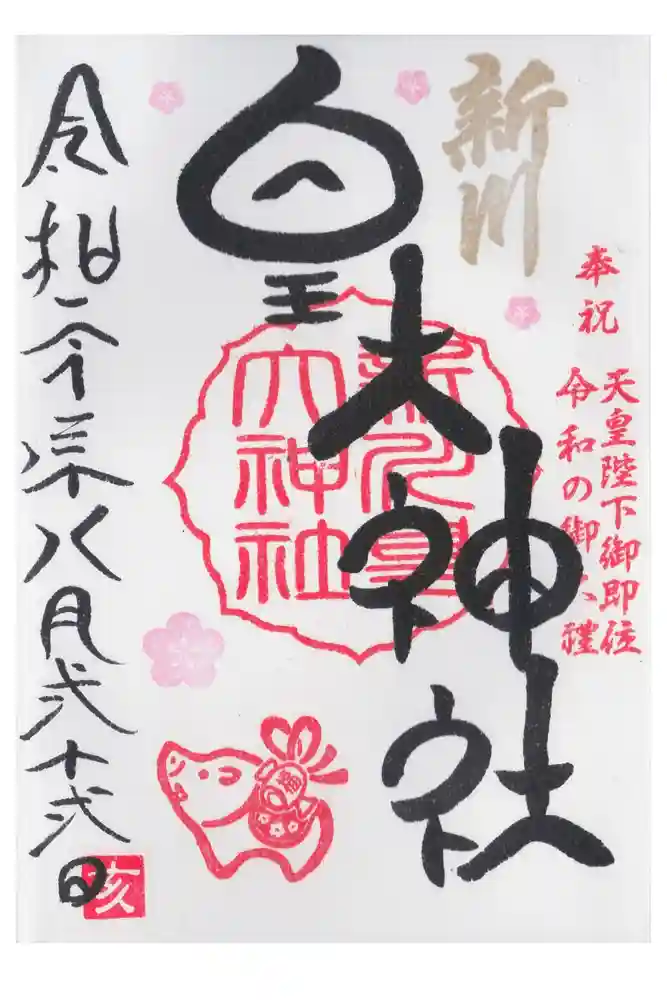 奉祝
天皇陛下御即位
令和の御大禮
新川
皇大神社
新川皇
大神社
令和元年八月弐十弐日
亥
福